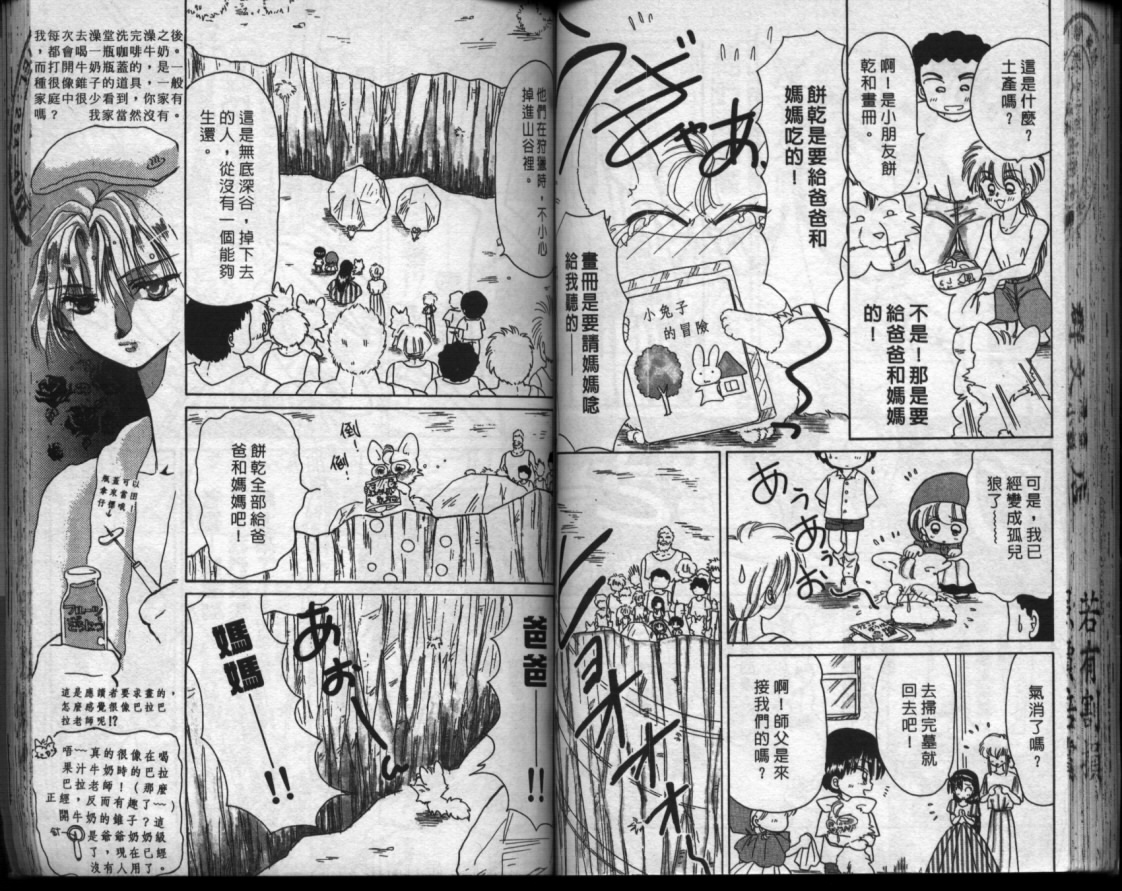 這是什麼？
土產嗎？
啊！是小朋友餅
乾和畫冊。
不是！那是要
給爸爸和媽媽
的！
餅乾是要給爸爸和
媽媽吃的！
うぎゃあ
小兔子
的冒險
畫冊是要請媽媽唸
給我聽的——
可是，我已
經變成孤兒
狼了~~~~
あうあおっ
氣消了嗎？
去掃完墓就
回去吧！
啊！師父是來
接我們的嗎？
ヒョオオオオ
他們在狩獵時，不小心
掉進山谷裡。
這是無底深谷，掉下去
的人，從沒有一個能夠
生還。
倒！
倒！
餅乾全部給爸
爸和媽媽吧！
爸爸——!!
あおーん
媽媽——!!
我每次去澡堂洗完澡之後
，都會喝一瓶咖啡牛奶。
而打開牛奶瓶蓋的，是一
種很像錐子的道具，一般
家庭中很少看到，你家有
嗎？我家當然沒有。
瓶蓋可以
拿來當圓
仔標哦！
フルーツ
這是應讀者要求畫的，
怎麼感覺很像巴拉巴
拉老師呢!?
唔~~真的很像在喝
果汁牛奶時的巴拉
巴拉老師！（那麼
正經，反而有趣了~~）
開牛奶的錐子？這
是爺爺奶奶級
了，現在已經
沒有人用了。